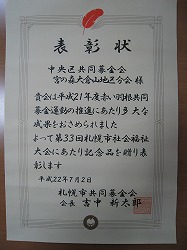 表彰状
中央区共同募金会
宮の森大倉山地区分会 様
貴会は平成21年度赤い羽根共同
募金運動の推進にあたり多大な
成果をおさめられました
よって第33回札幌市社会福祉
大会にあたり記念品を贈り表
彰します
平成22年7月2日
札幌市共同募金会
会長 吉中 新太郎